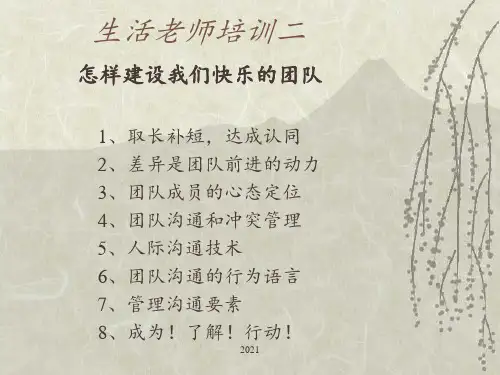 生活老师培训二
怎样建设我们快乐的团队
1、取长补短，达成认同
2、差异是团队前进的动力
3、团队成员的心态定位
4、团队沟通和冲突管理
5、人际沟通技术
6、团队沟通的行为语言
7、管理沟通要素
8、成为！了解！行动！
2021